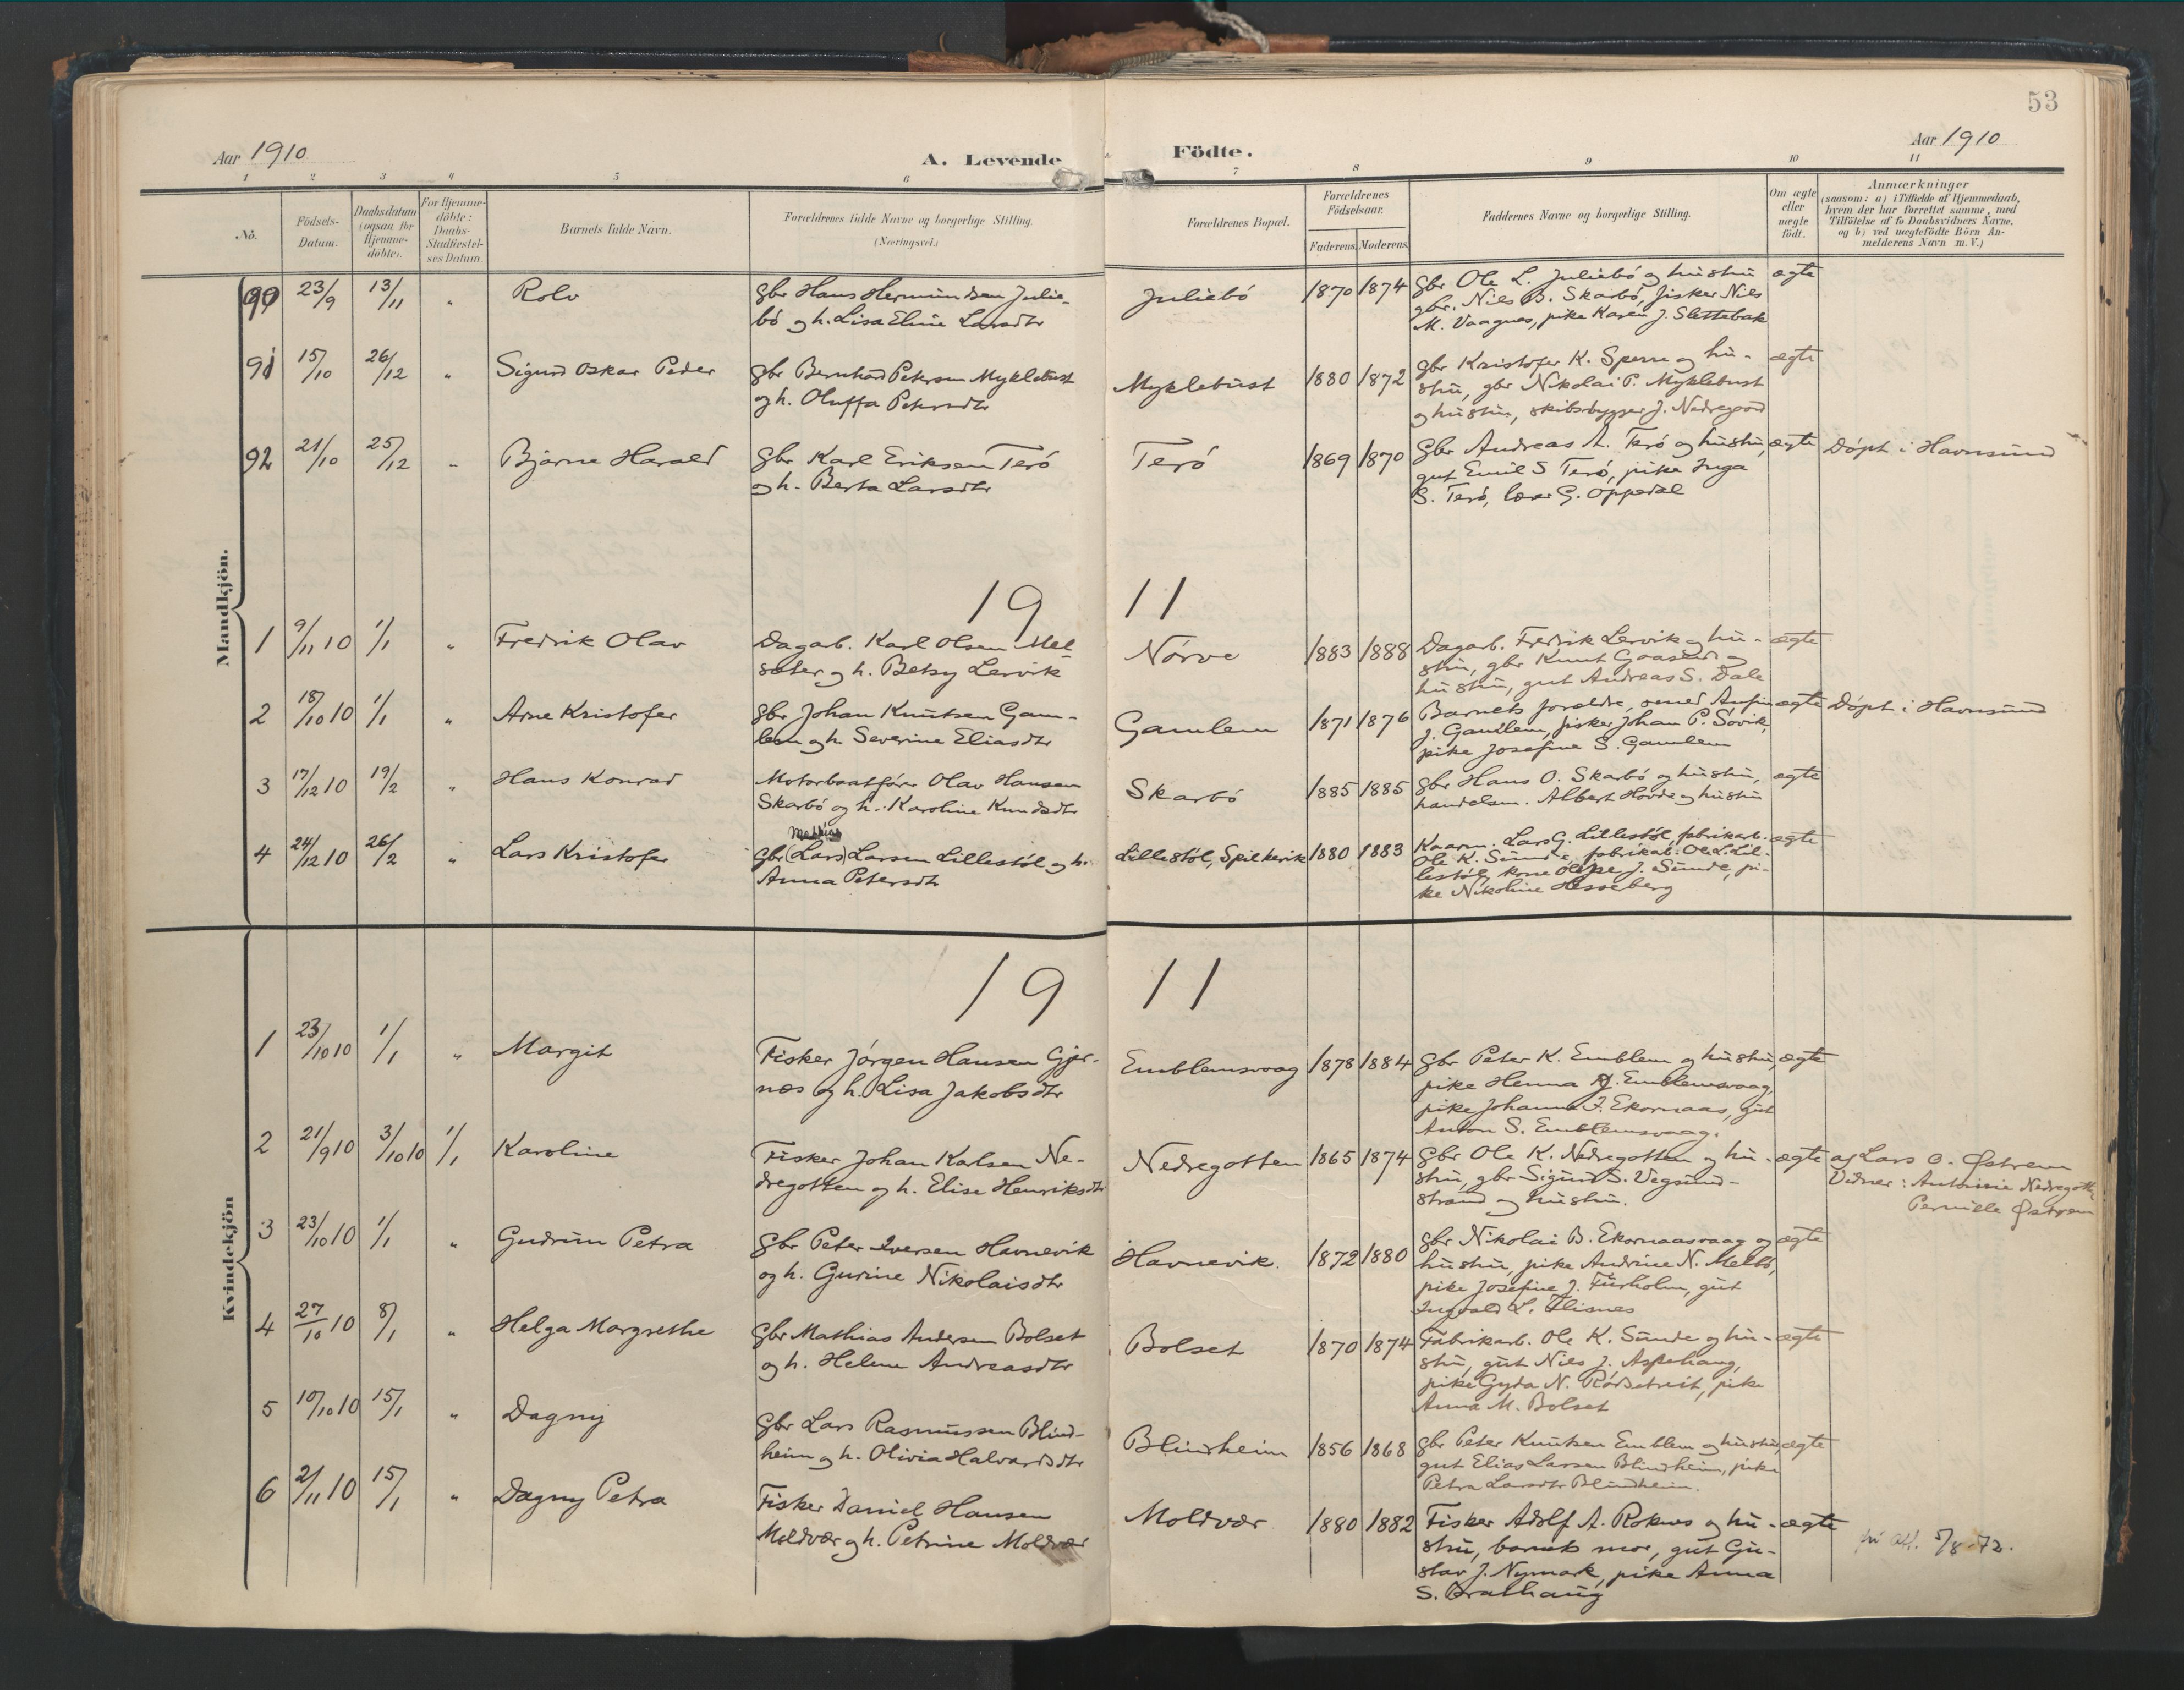 53
Aar 1910
A. Levende Födte.
Aar 1910
1 2 3 4 5 6 7 8 9 10 11
No.
Födsels-
Datum.
Daabsdatum
(ogsaa for
Hjemme-
døbte).
For Hjemme-
döbte:
Daabs-
Stadfæstel-
ses Datum.
Barnets fulde Navn.
Forældrenes fulde Navne og borgerlige Stilling.
(Næringsvei.)
Forældrenes Bopæl.
Forældrenes
Födselsaar.
Faderens. Moderens.
Faddernes Navne og borgerlige Stilling.
Om ægte
eller
uægte
födt.
Anmærkninger
(saasom: a) i Tilfælde af Hjemmedaab,
hvem der har forrettet samme, med
Tilföielse af to Daabsvidners Navne,
og b) ved uægtefödte Börn An-
melderens Navn m. V.)
Mandkjön.
90 23/9 13/11 " Rolv
gbr Hans Hermundsen Julie-
bó og h. Lisa Eline Larsdtr
Juliebó 1870 1874
gbr Ole L. Juliebó og hustru
gbr. Nils B. Skarbó, fisker Nils
M. Vaagnes, pike Karen J. Slettebak
ægte
91 15/10 26/12 " Sigurd Oskar Peder
gbr Bernhard Petersen Myklebust
og h. Oluffa Petersdtr
Myklebust 1880 1872
gbr Kristofer K. Sperre og hu-
stru, gbr Nikolai P. Myklebust
og hustru, skibsbygger J. Nedregaard
ægte
92 21/10 25/12 " Bjarne Harald
gbr Karl Eriksen Teró
og h. Berta Larsdtr
Teró 1869 1870
Gbr Andreas A. Teró og hustru,
gut Emil S Teró, pike Inga
S. Teró, lærer G. Oppedal
ægte Dópt i Havnsund
19 11
1 9/11 10 1/1 " Fredrik Olav
Dagarb. Karl Olsen Mel-
sæter og h. Betsy Lervik
Nórve 1883 1888
Dagarb. Fredrik Lervik og hu-
stru, gbr Knut Gaaseid og
hustru, gut Andreas S. Dale
ægte
2 18/10 10 1/1 " Arne Kristofer
gbr Johan Knutsen Gam-
lem og h. Severine Eliasdtr
Gamlem 1871 1876
Barnets forældre, ornd Anfin
J. Gamlem, fisker Johan P. Sóvik,
pike Josefine S. Gamlem
ægte Dópt i Havnsund
3 17/12 10 19/2 " Hans Konrad
Motorbaatfórer Olav Hansen
Skarbó og h. Karoline Knudsdtr
Skarbó 1885 1885
gbr Hans O. Skarbó og hustru,
handelsm. Albert Hovde og hustru
ægte
4 24/12 10 26/2 " Lars Kristofer
gbr (Lars) Larsen Lillestól og h.
Anna Petersdtr
Lillestól, Spilkevik 1880 1883
Kaarm. Lars G. Lillestól, fabrikarb.
Ole K. Sunde, fabrikarb. Ole L. Lil-
lestól, kone Olepe J. Sunde, pi-
ke Nikoline Hesseberg
ægte
Kvindekjön
19 11
1 23/10 10 1/1 " Margit
Fisker Jórgen Hansen Gjer-
næs og h. Lisa Jakobsdtr
Emblemsvaag 1878 1884
gbr Peter K. Emblem og hustru,
pike Henna J. Emblemsvaag,
pike Johanna J. Ekornaas, gut
Anton S. Emblemsvaag.
ægte
2 21/9 10 3/10 10 1/1 Karoline
Fisker Johan Karlsen Ne-
dregotten og h. Elise Henriksdtr
Nedregotten 1865 1874
gbr Ole K. Nedregotten og hu-
stru, gbr Sigurd S. Vegsund-
strand og hustru.
ægte af Lars O. Østrem
Vidner: Antonie Nedregott
Pernille Østrem
3 23/10 10 1/1 " Gudrun Petra
gbr Peter Iversen Havnevik
og h. Gurine Nikolaisdtr
Havnevik. 1872 1880
gbr Nikolai B. Ekornaasvaag og
hustru, pike Andrine N. Melbó,
pike Josefine J. Furholm, gut
Ingvald L. Flisnes
ægte
4 27/10 10 8/1 " Helga Margrethe
gbr Mathias Andersen Bolset
og h. Helene Andreasdtr
Bolset 1870 1874
Fabrikarb. Ole K. Sunde og hu-
stru, gut Nils J. Aspehaug,
pike Gyda N. Ródsetreit, pike
Anna M. Bolset
ægte
5 10/10 10 15/1 " Dagny
gbr Lars Rasmussen Blind-
heim og h. Olivia Halvardsdtr
Blindheim 1856 1868
gbr Peter Knutsen Emblem og hustru,
gut Elias Larsen Blindheim, pike
Petra Larsdtr Blindheim.
ægte
6 2/11 10 15/1 " Dagny Petra
Fisker Daniel Hansen
Moldvær og h. Petrine Moldvær
Moldvær 1880 1882
Fisker Adolf A. Roknes og hu-
stru, barnets mor, gut Gu-
stav J. Nymark, pike Anna
S. Brathaug
ægte
5/8-72.